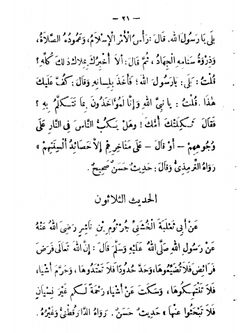 — ٢١ —
بَلَى يَا رَسُولَ اللهِ. قَالَ: رَأْسُ الْأَمْرِ الْإِسْلَامُ، وَعَمُودُهُ الصَّلَاةُ،
وَذِرْوَةُ سَنَامِهِ الْجِهَادُ، ثُمَّ قَالَ: أَلَا أُخْبِرُكَ بِمِلَاكِ ذَلِكَ كُلِّهِ؟
قُلْتُ: بَلَى يَا رَسُولَ اللهِ، فَأَخَذَ بِلِسَانِهِ وَقَالَ: كُفَّ عَلَيْكَ
هَذَا. قُلْتُ: يَا نَبِيَّ اللهِ وَإِنَّا لَمُؤَاخَذُونَ بِمَا نَتَكَلَّمُ بِهِ؟
فَقَالَ: ثَكِلَتْكَ أُمُّكَ! وَهَلْ يَكُبُّ النَّاسَ فِي النَّارِ عَلَى
وُجُوهِهِمْ — أَوْ قَالَ — عَلَى مَنَاخِرِهِمْ إِلَّا حَصَائِدُ أَلْسِنَتِهِمْ»
رَوَاهُ التِّرْمِذِيُّ وَقَالَ: حَدِيثٌ حَسَنٌ صَحِيحٌ.
الحديث الثلاثون
عَنْ أَبِي ثَعْلَبَةَ الْخُشَنِيِّ جُرْثُومِ بْنِ نَاشِرٍ رَضِيَ اللهُ عَنْهُ
عَنْ رَسُولِ اللهِ صَلَّى اللهُ عَلَيْهِ وَسَلَّمَ قَالَ: إِنَّ اللهَ تَعَالَى فَرَضَ
فَرَائِضَ فَلَا تُضَيِّعُوهَا، وَحَدَّ حُدُودًا فَلَا تَعْتَدُوهَا، وَحَرَّمَ أَشْيَاءَ،
فَلَا تَنْتَهِكُوهَا، وَسَكَتَ عَنْ أَشْيَاءَ، رَحْمَةً لَكُمْ غَيْرَ نِسْيَانٍ
فَلَا تَبْحَثُوا عَنْهَا» حَدِيثٌ حَسَنٌ. رَوَاهُ الدَّارَقُطْنِيُّ وَغَيْرُهُ.